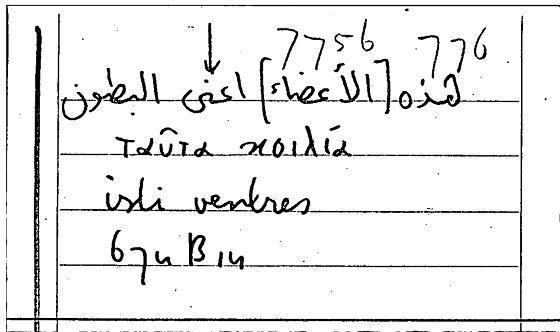 7756 776
هذه [الأعضاء] اعنى البطون
ταῦτα κοιλία
isti ventres
67u B 14